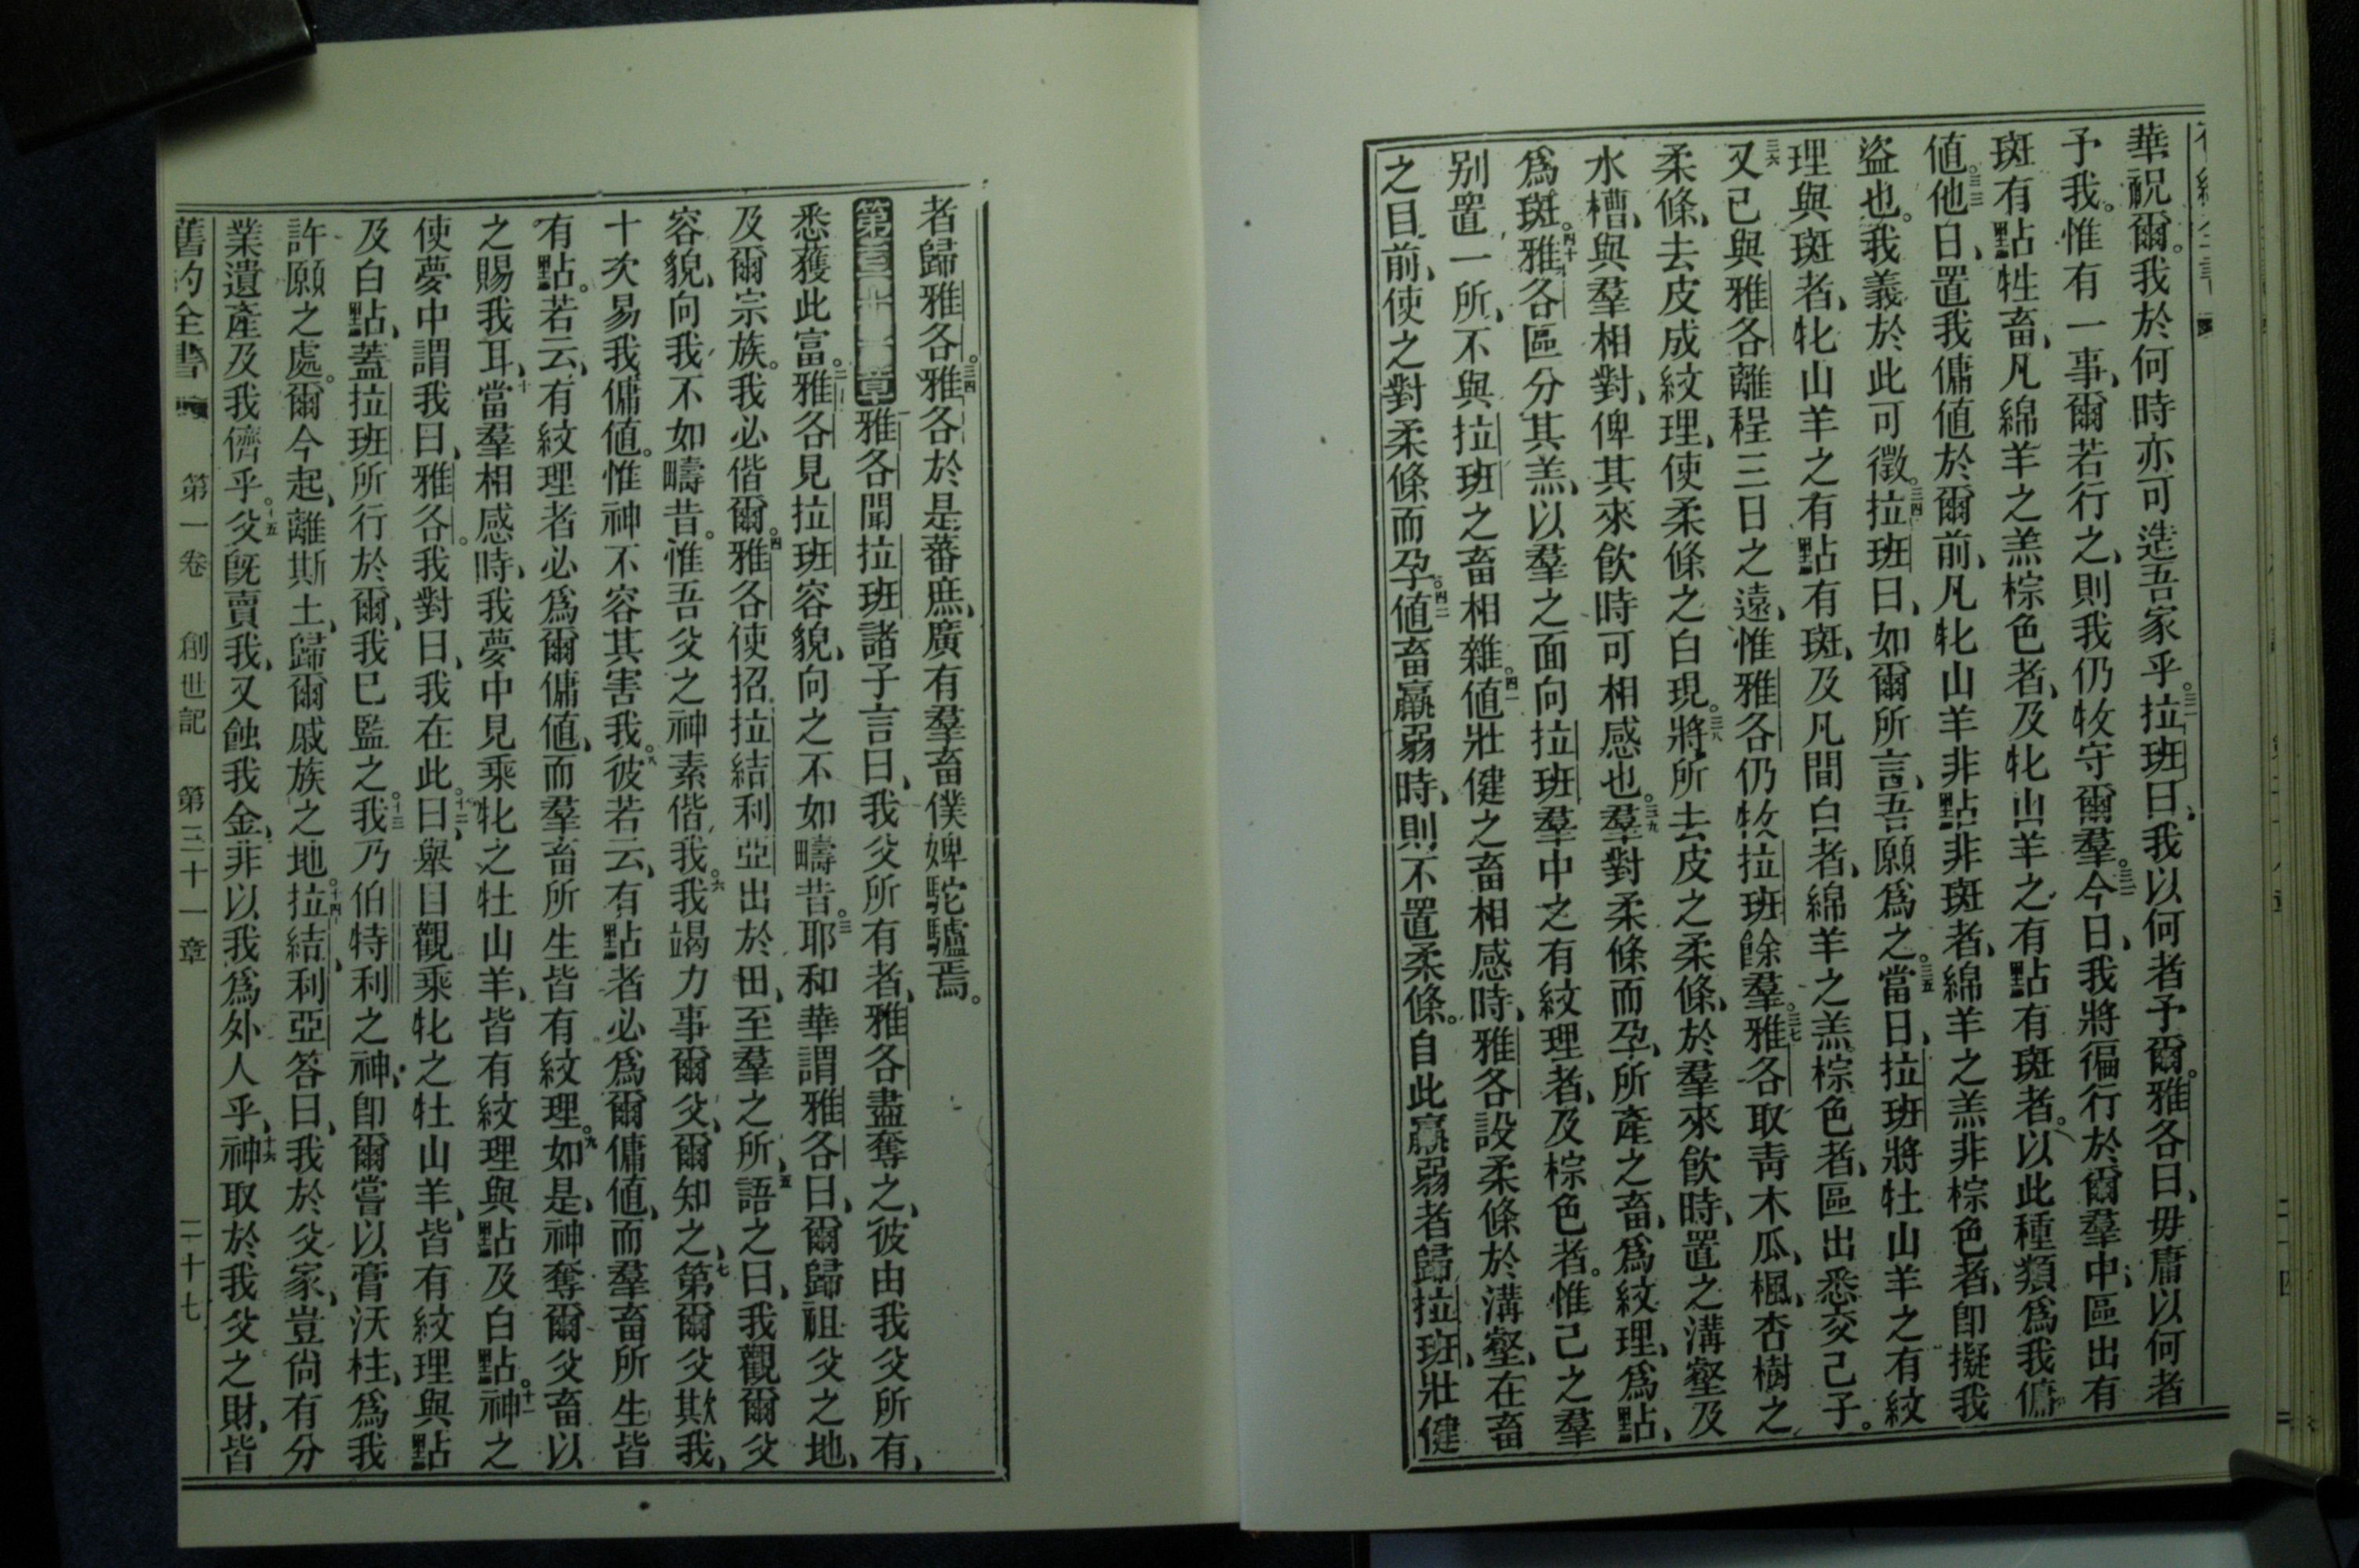 華祝爾。我於何時亦可造吾家乎。三一拉班曰、我以何者予爾。雅各曰、毋庸以何者
予我。惟有一事、爾若行之、則我仍牧守爾羣。三二今日、我將徧行於爾羣中、區出有
斑有點牲畜、凡綿羊之羔棕色者、及牝山羊之有點有斑者。以此種類爲我傭
値。三三他日、置我傭値於爾前、凡牝山羊非點非斑者、綿羊之羔非棕色者、卽擬我
盜也。我義於此可徵。三四拉班曰、如爾所言、吾願爲之。三五當日、拉班將牡山羊之有紋
理與斑者、牝山羊之有點有斑、及凡間白者、綿羊之羔棕色者、區出悉交己子。
三六又己與雅各離程三日之遠、惟雅各仍牧拉班餘羣。三七雅各取靑木瓜、楓、杏樹之
柔條、去皮成紋理、使柔條之白現。三八將所去皮之柔條、於羣來飮時、置之溝壑及
水槽、與羣相對、俾其來飮時可相感也。三九羣對柔條而孕、所產之畜、爲紋理、爲點、
爲斑。四十雅各區分其羔、以羣之面向拉班羣中之有紋理者、及棕色者。惟己之羣
别置一所、不與拉班之畜相雜。四一値壯健之畜相感時、雅各設柔條於溝壑、在畜
之目前、使之對柔條而孕。四二値畜羸弱時、則不置柔條。自此羸弱者歸拉班、壯健
者歸雅各。雅各於是蕃庶、廣有羣畜僕婢駝驢焉。
第三十一章 一雅各聞拉班諸子言曰、我父所有者、雅各盡奪之、彼由我父所有、
悉獲此富。二雅各見拉班容貌、向之不如疇昔。三耶和華謂雅各曰、爾歸祖父之地、
及爾宗族。我必偕爾。四雅各使招拉結利亞出於田、至羣之所、五語之曰、我觀爾父
容貌、向我不如疇昔。惟吾父之神素偕我。六我竭力事爾父、爾知之、七第爾父欺我、
十次易我傭値。惟神不容其害我。八彼若云、有點者必爲爾傭値、而羣畜所生皆
有點。若云、有紋理者必爲爾傭値、而羣畜所生皆有紋理。九如是、神奪爾父畜以
之賜我耳、十當羣相感時、我夢中見乘牝之牡山羊、皆有紋理與點及白點。十一神之
使夢中謂我曰、雅各。我對曰、我在此。十二曰、舉目觀乘牝之牡山羊、皆有紋理與點
及白點、蓋拉班所行於爾、我已監之。十三我乃伯特利之神、卽爾嘗以膏沃柱、爲我
許願之處。爾今起、離斯土、歸爾戚族之地。十四拉結、利亞答曰、我於父家、豈尙有分
業遺產及我儕乎。十五父旣賣我、又蝕我金、非以我爲外人乎、十六神取於我父之財、皆
舊約全書 第一卷 創世記 第三十一章 二十七